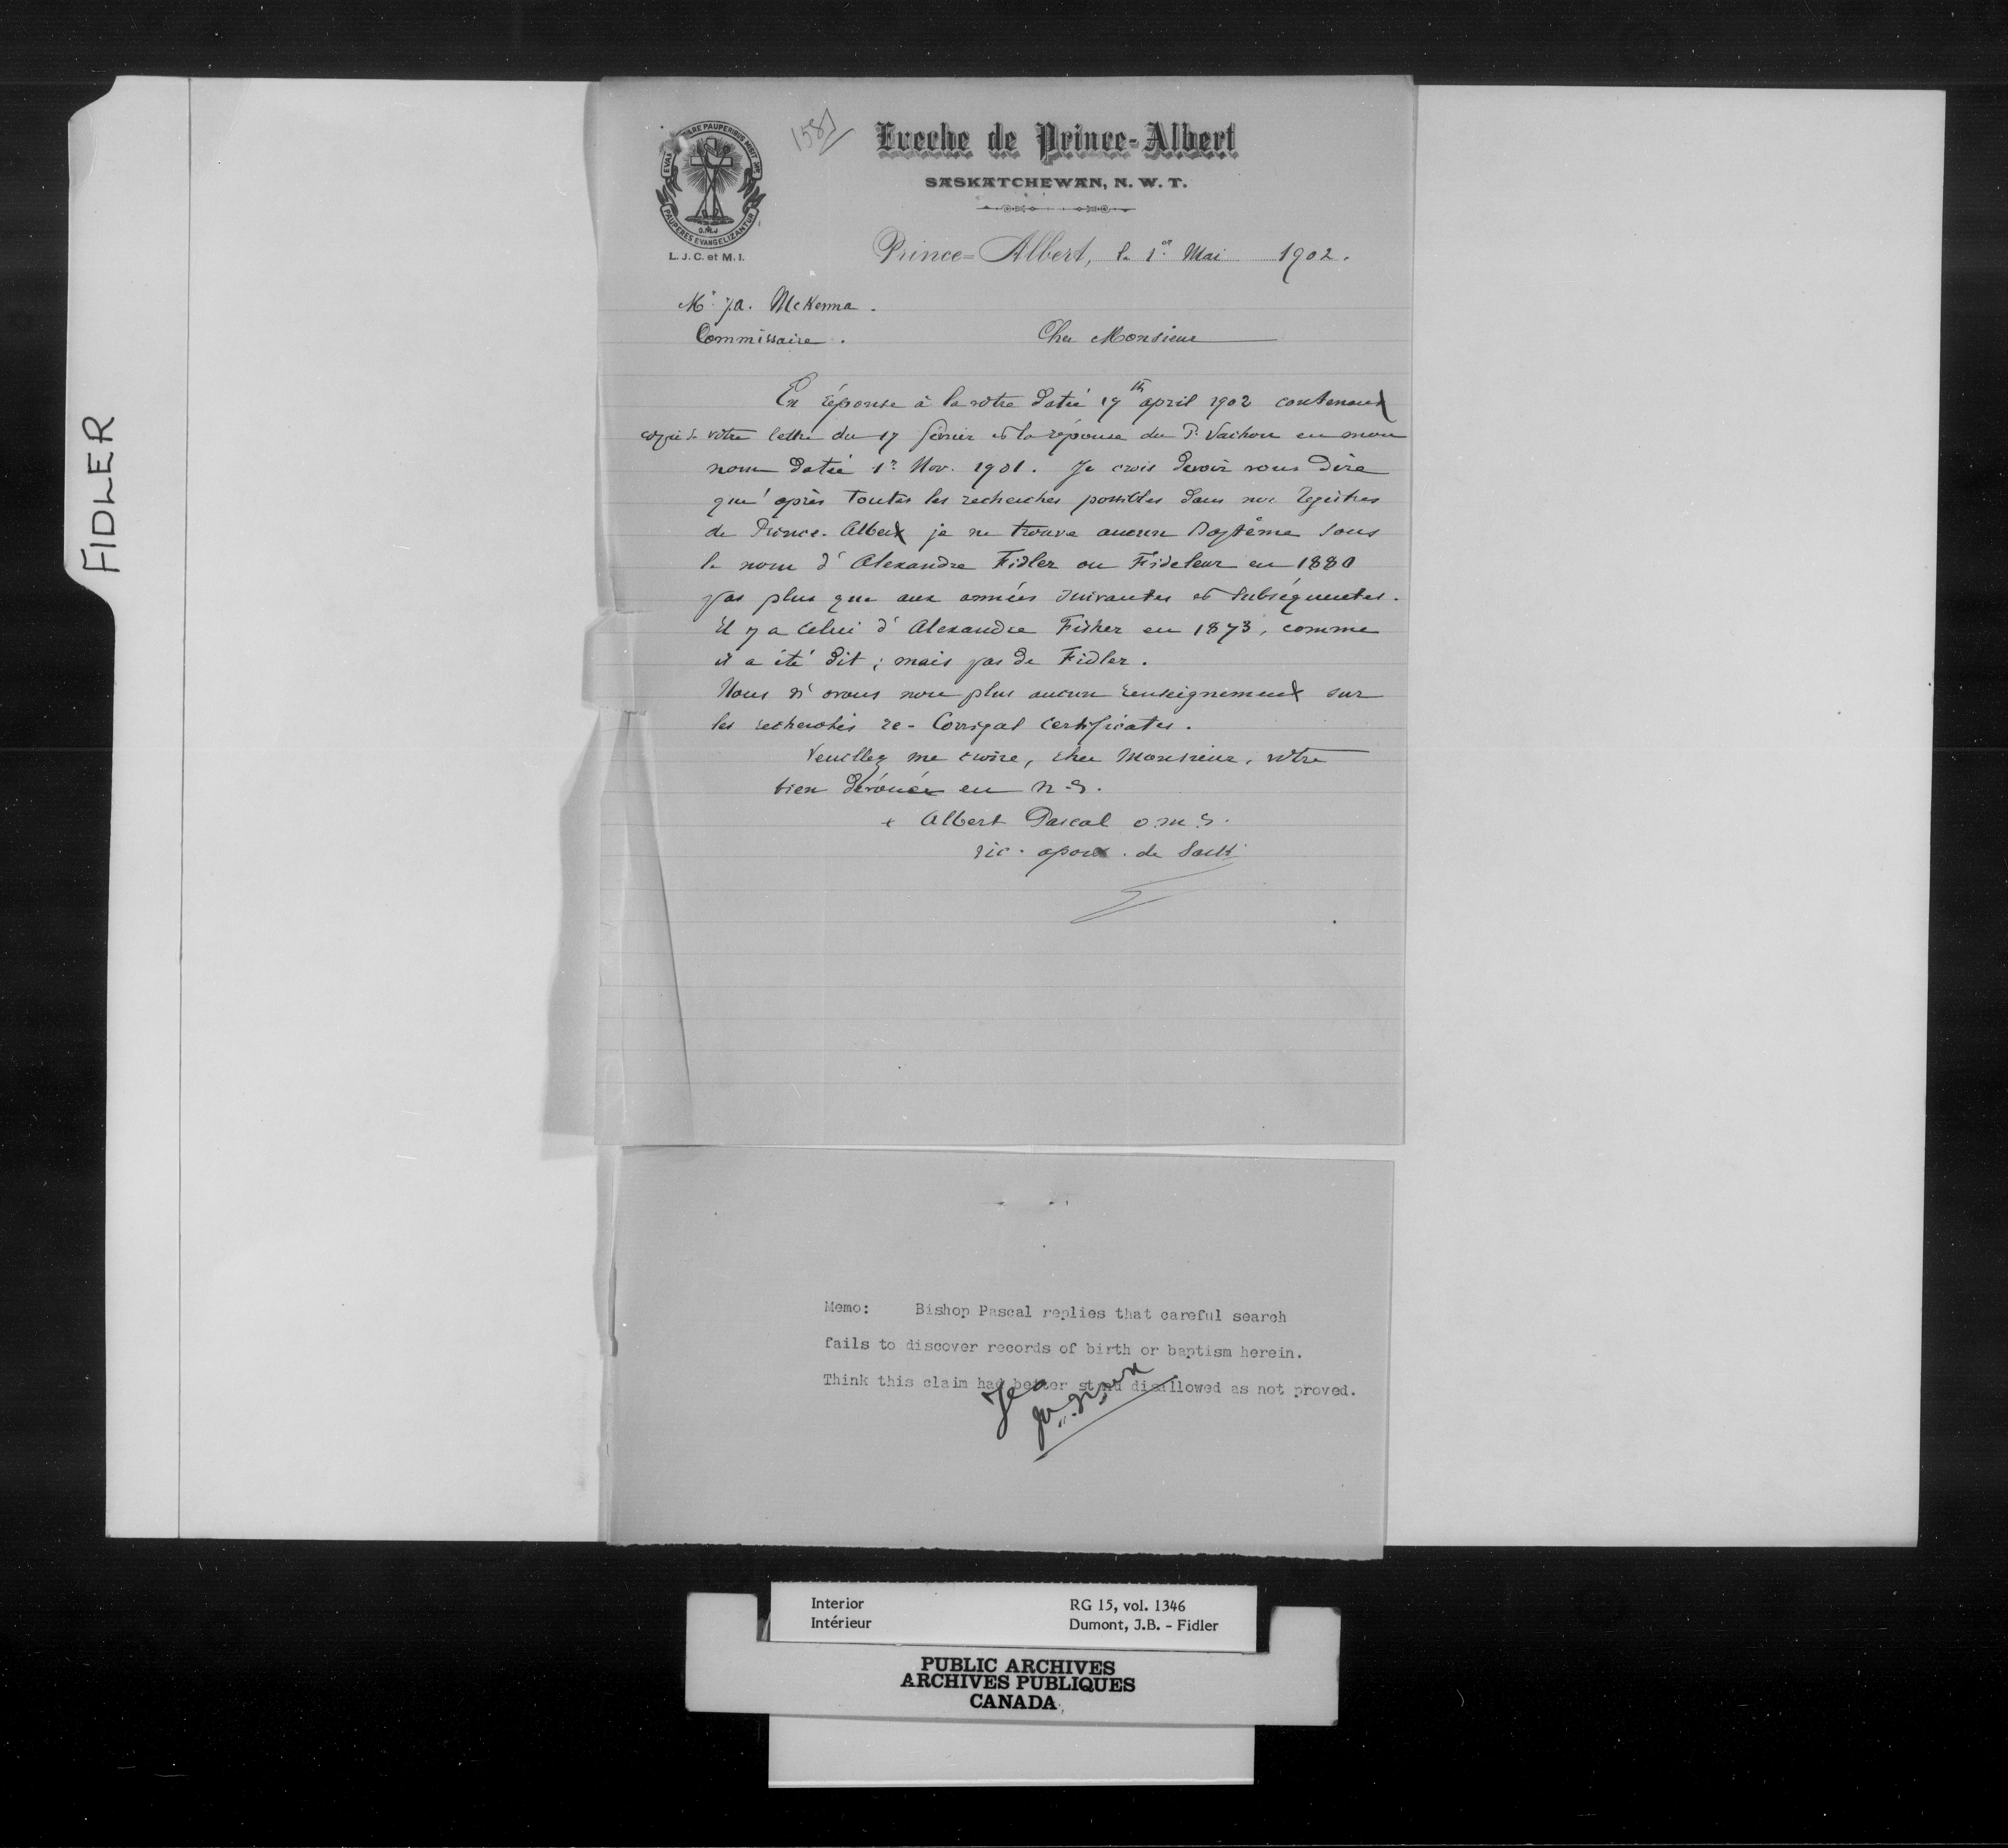 FIDLER
1587
EVANGELIZARE PAUPERIBUS MISIT ME
PAUPERES EVANGELIZANTUR
O.M.I
L. J. C. et M. I.
Eveche de Prince-Albert
SASKATCHEWAN, N. W. T.
Prince=Albert, le 1er Mai 1902.
Mr J.A. McKenna.
Commissaire. Cher Monsieur
En réponse à la votre datée 19th april 1902 contenant
copie de vôtre lettre du 17 février et la réponse du P. Vachon en mon
nom datée 1r Nov. 1901. Je crois devoir vous dire
qu'après toutes les recherches possibles dans nos Registres
de Prince-Albert je ne trouve aucun Baptême sous
le nom d'Alexandre Fidler ou Fideleur en 1880
pas plus que aux années suivantes et subséquentes.
Il y a celui d'Alexandre Fisher en 1873, comme
il a été dit; mais pas de Fidler.
Nous n'avons non plus aucun renseignement sur
les recherches re- Corrigal certificates.
Veuillez me croire, cher Monsieur, vôtre
bien dévoué en N.S.
+ Albert Pascal o.m.i.
vic. apost. de Sask
Memo: Bishop Pascal replies that careful search
fails to discover records of birth or baptism herein.
Think this claim had better stand disallowed as not proved.
Interior
Intérieur
RG 15, vol. 1346
Dumont, J.B. - Fidler
PUBLIC ARCHIVES
ARCHIVES PUBLIQUES
CANADA